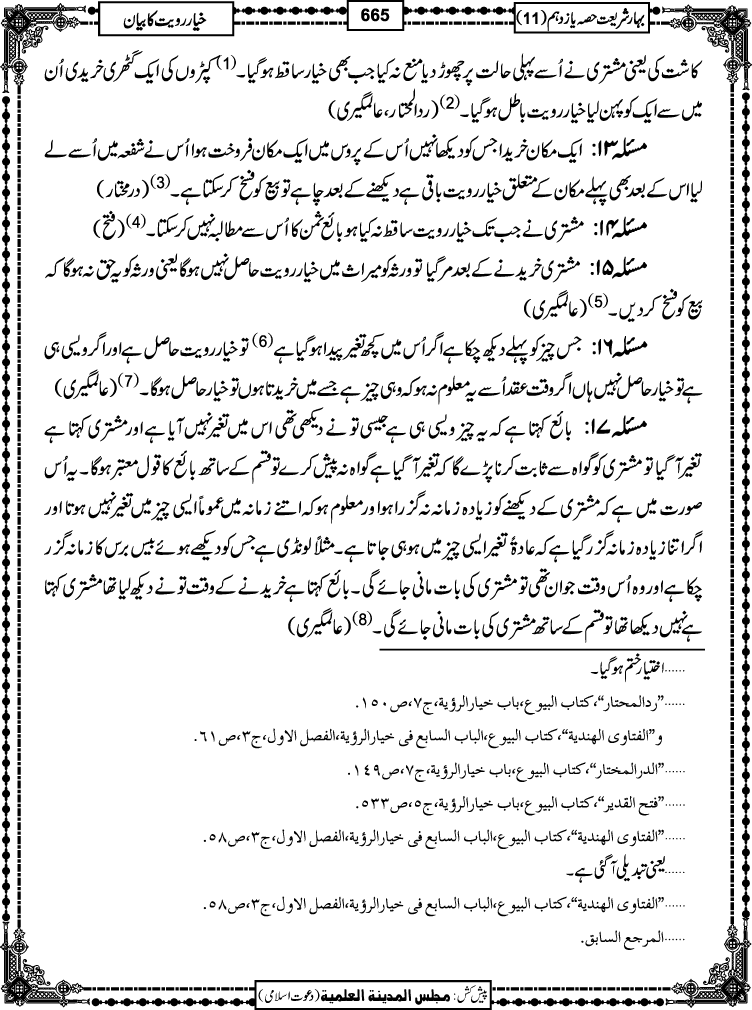 بہارشریعت حصہ یازدہم (11)
665
خیار رویت کا بیان
کاشت کی یعنی مشتری نے اُسے پہلی حالت پر چھوڑ دیا منع نہ کیا جب بھی خیار ساقط ہوگیا۔(1) کپڑوں کی ایک گٹھری خریدی اُن
میں سے ایک کو پہن لیا خیار رویت باطل ہوگیا۔(2) (ردالمحتار، عالمگیری)
مسئلہ ۱۳: ایک مکان خریدا جس کو دیکھا نہیں اُس کے پروس میں ایک مکان فروخت ہوا اُس نے شفعہ میں اُسے لے
لیا اس کے بعد بھی پہلے مکان کے متعلق خیار رویت باقی ہے دیکھنے کے بعد چاہے تو بیع کو فسخ کرسکتا ہے۔(3) (درمختار)
مسئلہ ۱۴: مشتری نے جب تک خیار رویت ساقط نہ کیا ہو بائع ثمن کا اُس سے مطالبہ نہیں کرسکتا۔(4) (فتح)
مسئلہ ۱۵: مشتری خریدنے کے بعد مر گیا تو ورثہ کو میراث میں خیار رویت حاصل نہیں ہوگا یعنی ورثہ کو یہ حق نہ ہوگا کہ
بیع کو فسخ کردیں۔(5) (عالمگیری)
مسئلہ ۱۶: جس چیز کو پہلے دیکھ چکا ہے اگر اُس میں کچھ تغیر پیدا ہوگیا ہے(6) تو خیار رویت حاصل ہے اور اگر ویسی ہی
ہے تو خیار حاصل نہیں ہاں اگر وقت عقد اُسے یہ معلوم نہ ہو کہ وہی چیز ہے جسے میں خریدتا ہوں تو خیار حاصل ہوگا۔(7) (عالمگیری)
مسئلہ ۱۷: بائع کہتا ہے کہ یہ چیز ویسی ہی ہے جیسی تو نے دیکھی تھی اس میں تغیر نہیں آیا ہے اور مشتری کہتا ہے
تغیر آگیا تو مشتری کو گواہ سے ثابت کرنا پڑے گا کہ تغیر آگیا ہے گواہ نہ پیش کرے تو قسم کے ساتھ بائع کا قول معتبر ہوگا۔ یہ اُس
صورت میں ہے کہ مشتری کے دیکھنے کو زیادہ زمانہ نہ گزرا ہو اور معلوم ہو کہ اتنے زمانہ میں عموماً ایسی چیز میں تغیر نہیں ہوتا اور
اگر اتنا زیادہ زمانہ گزر گیا ہے کہ عادۃً تغیر ایسی چیز میں ہو ہی جاتا ہے۔ مثلاً لونڈی ہے جس کو دیکھے ہوئے بیس برس کا زمانہ گزر
چکا ہے اور وہ اُس وقت جوان تھی تو مشتری کی بات مانی جائے گی۔ بائع کہتا ہے خریدنے کے وقت تو نے دیکھ لیا تھا مشتری کہتا
ہے نہیں دیکھا تھا تو قسم کے ساتھ مشتری کی بات مانی جائے گی۔(8) (عالمگیری)
......اختیار ختم ہوگیا۔
......”ردالمحتار“،کتاب البیوع،باب خیارالرؤیة،ج۷،ص۱۵۰.
و”الفتاوی الهندیة“،کتاب البیوع،الباب السابع فی خیارالرؤیة،الفصل الاول،ج۳،ص۶۱.
......”الدرالمختار“،کتاب البیوع،باب خیارالرؤیة،ج۷،ص۱۴۹.
......”فتح القدیر“،کتاب البیوع،باب خیارالرؤیة،ج۵،ص۵۳۳.
......”الفتاوی الهندیة“،کتاب البیوع،الباب السابع فی خیارالرؤیة،الفصل الاول،ج۳،ص۵۸.
......یعنی تبدیلی آگئی ہے۔
......”الفتاوی الهندیة“،کتاب البیوع،الباب السابع فی خیارالرؤیة،الفصل الاول،ج۳،ص۵۸.
......المرجع السابق.
پیش کش: مجلس المدینة العلمیة (دعوت اسلامی)